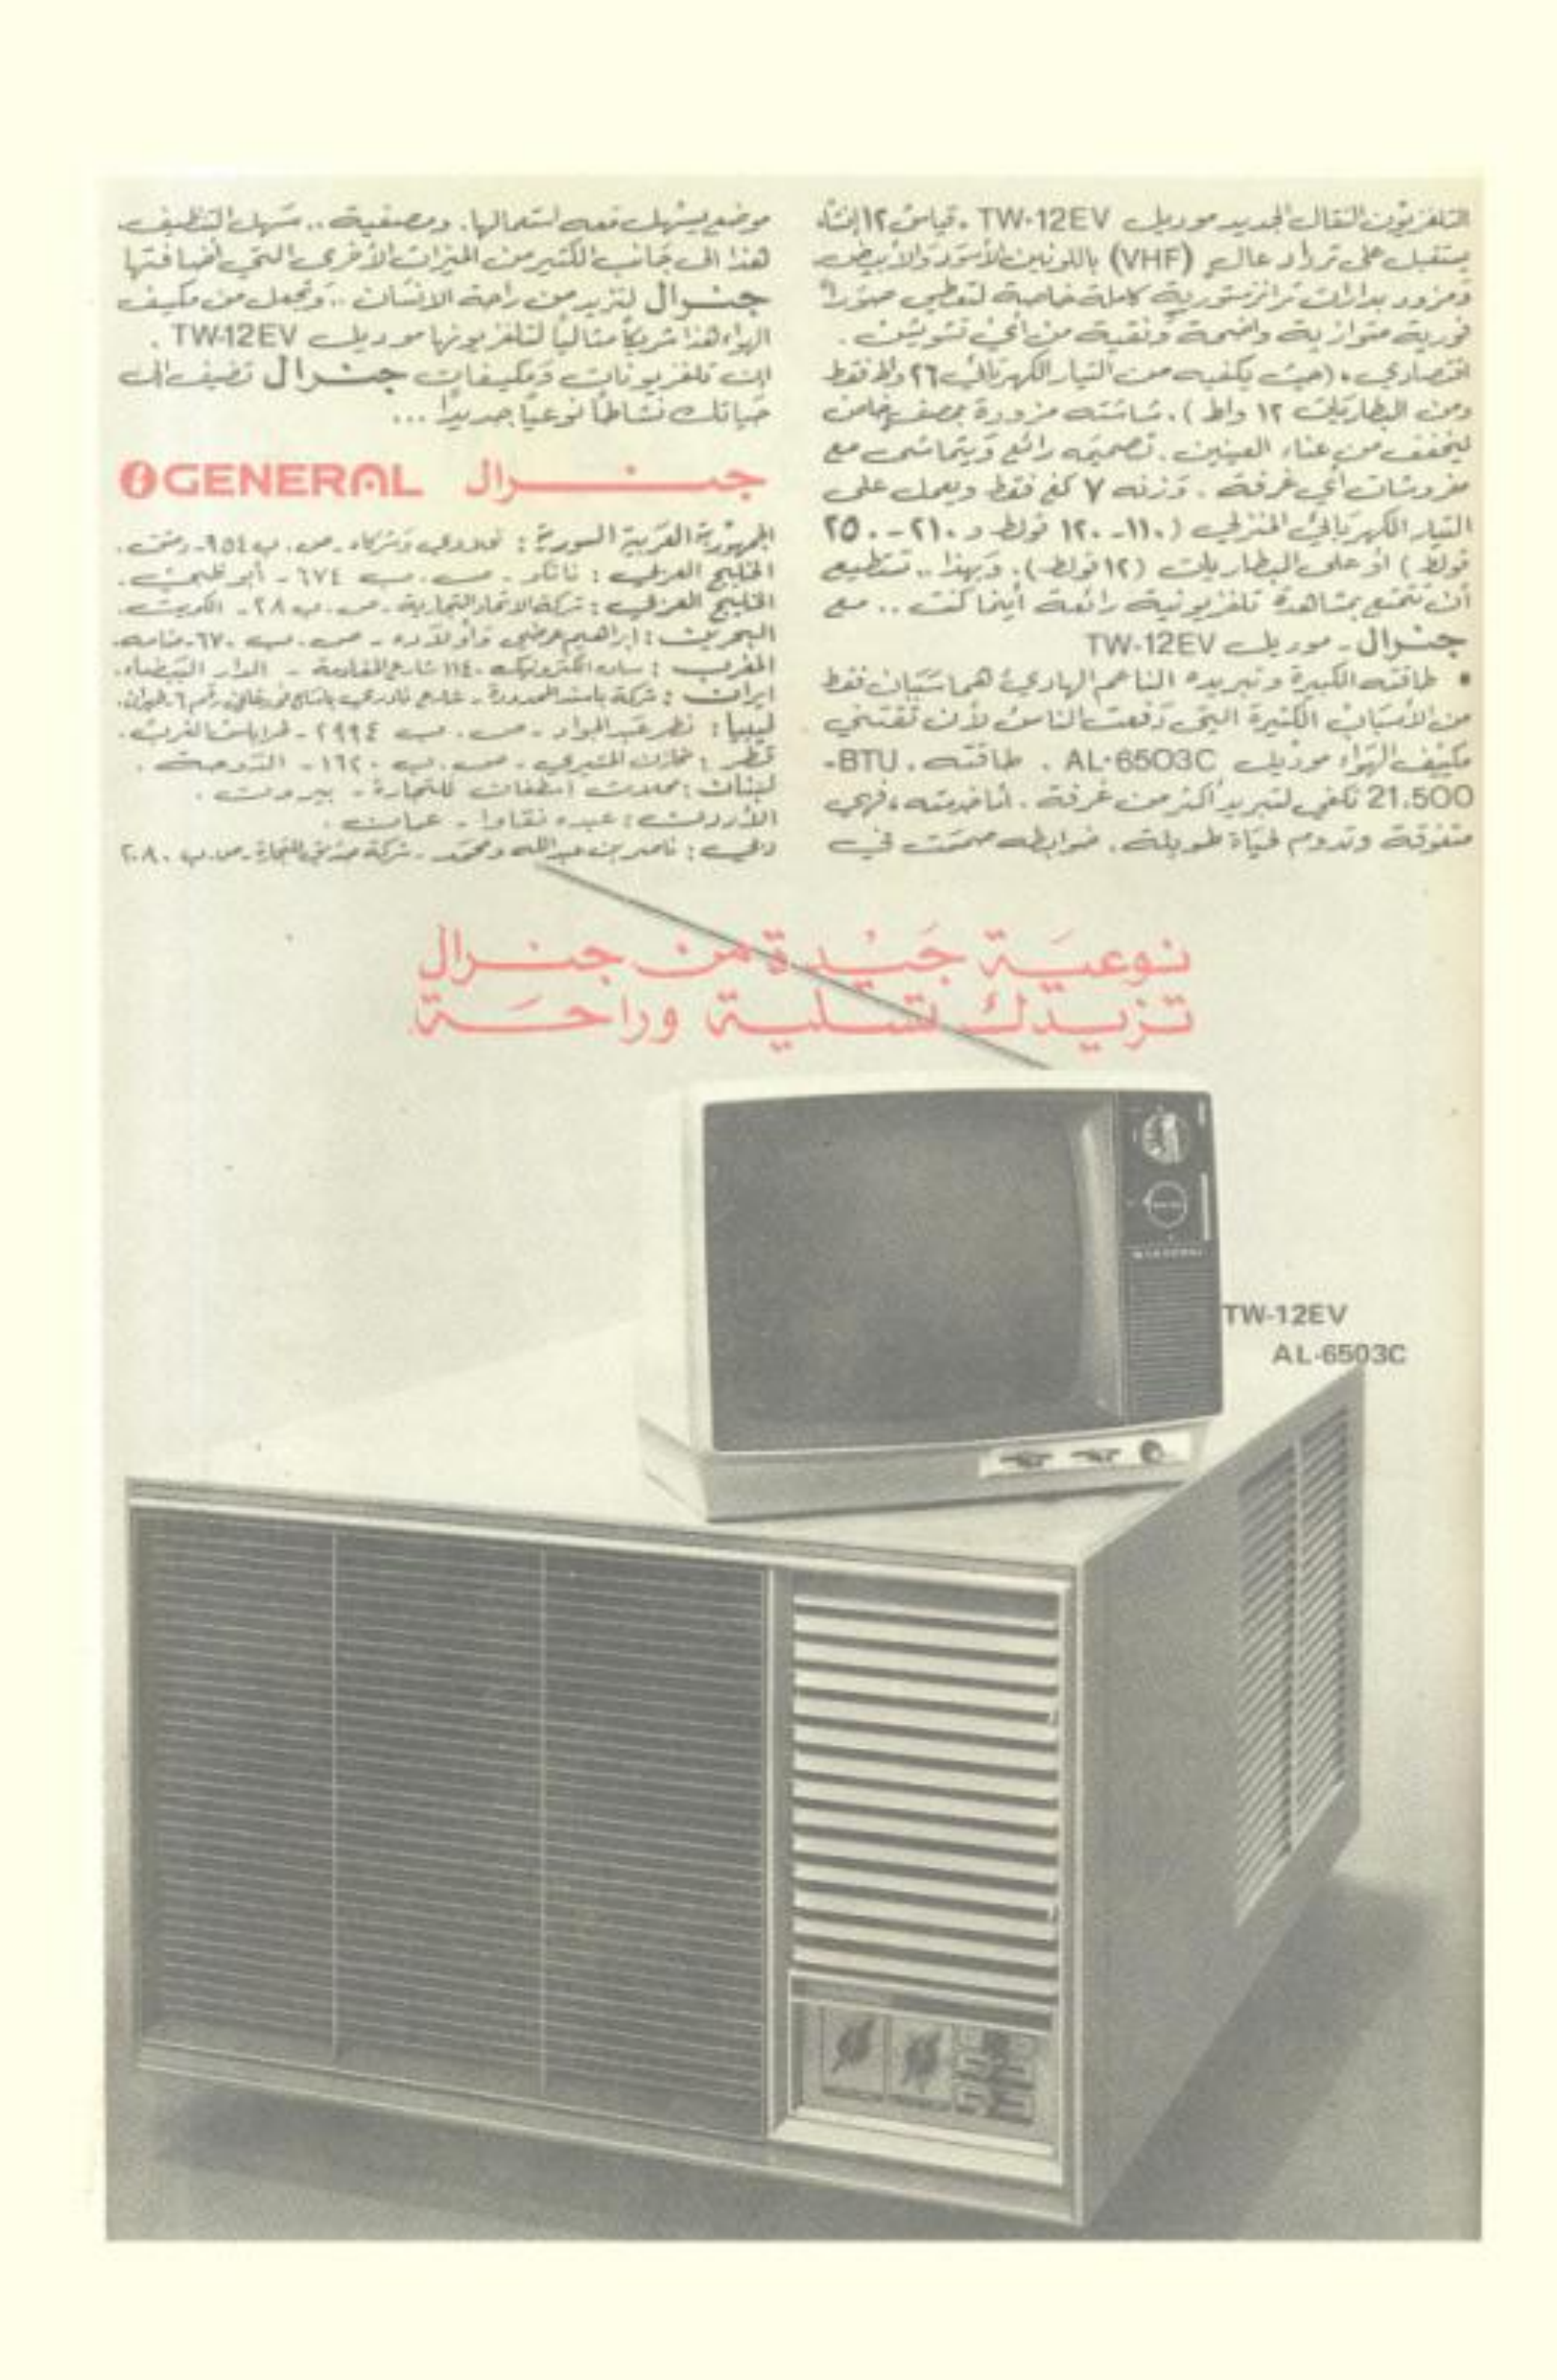 التلفزيون النقال الجديد موديل TW-12EV . قياس ١٢ إنشاً
يستقبل على تردد عالٍ (VHF) باللونين الأسود والأبيض
ومزود بدارات ترانزستورية كاملة خاصة لتعطي صوراً
فورية متوازية واضحة ونقية من أي تشويش .
اقتصادي ، (حيث يكفيه من التيار الكهربائي ٢٦ واط فقط
ومن البطاريات ١٢ واط ) . شاشته مزودة بمصف خاص
ليخفف من عناء العينين . تصميمه رائع ويتماشى مع
مفروشات أي غرفة . وزنه ٧ كغ فقط ويعمل على
التيار الكهربائي المنزلي ( ١١٠ - ١٢٠ فولط و ٢١٠ - ٢٥٠
فولط ) أو على البطاريات (١٢ فولط) . وبهذا .. تستطيع
أن تتمتع بمشاهدة تلفزيونية رائعة أينما كنت .. مع
جنرال - موديل TW-12EV
• طاقته الكبيرة وتبريده الناعم الهادئ هما سببان فقط
من الأسباب الكثيرة التي دفعت الناس لأن تقتني
مكيف الهواء موديل AL-6503C . طاقته . BTU-
21.500 تكفي لتبريد أكثر من غرفة . أما خدمته ، فهي
متفوقة وتدوم لحياة طويلة . ضوابطه صممت في
موضع يسهل معه استعمالها . ومصفيه .. سهل التنظيف
هذا الى جانب الكثير من الميزات الأخرى التي أضافتها
جنرال لتزيد من راحة الانسان .. وتجعل من مكيف
الهواء هذا شريكاً مثالياً لتلفزيونها موديل TW-12EV .
إن تلفزيونات ومكيفات جنرال تضيف الى
حياتك نشاطاً نوعياً جديداً ...
جنرال GENERAL
الجمهورية العربية السورية : نحلاوي وشركاه - ص . ب ٩٥٤ - دمشق .
الخليج العربي : نانكو - ص . ب ٦٧٤ - أبو ظبي .
الخليج العربي : شركة الاتحاد التجارية - ص . ب ٢٨ - الكويت .
البحرين : ابراهيم عرضي وأولاده - ص . ب ٦٧٠ - منامه .
المغرب : سان الكترونيك - ١١٤ شارع المقاومة - الدار البيضاء .
ايران : شركة باسند المحدودة - شارع نادري رقم ٦ طهران .
ليبيا : نصر عبد الجواد - ص . ب ٢٩٩٤ - طرابلس الغرب .
قطر : مخازن المنيري - ص . ب ١١٦٢ - الدوحة .
لبنان : محلات اسطفان للتجارة - بيروت .
الأردن : عبده نقاوا - عمان .
دبي : ناصر بن عبد الله ومحمد - شركة ص . ب ٢٠٨٠
نوعية جيدة من جنرال
تزيدك تسلية وراحة
GENERAL
TW-12EV
AL-6503C